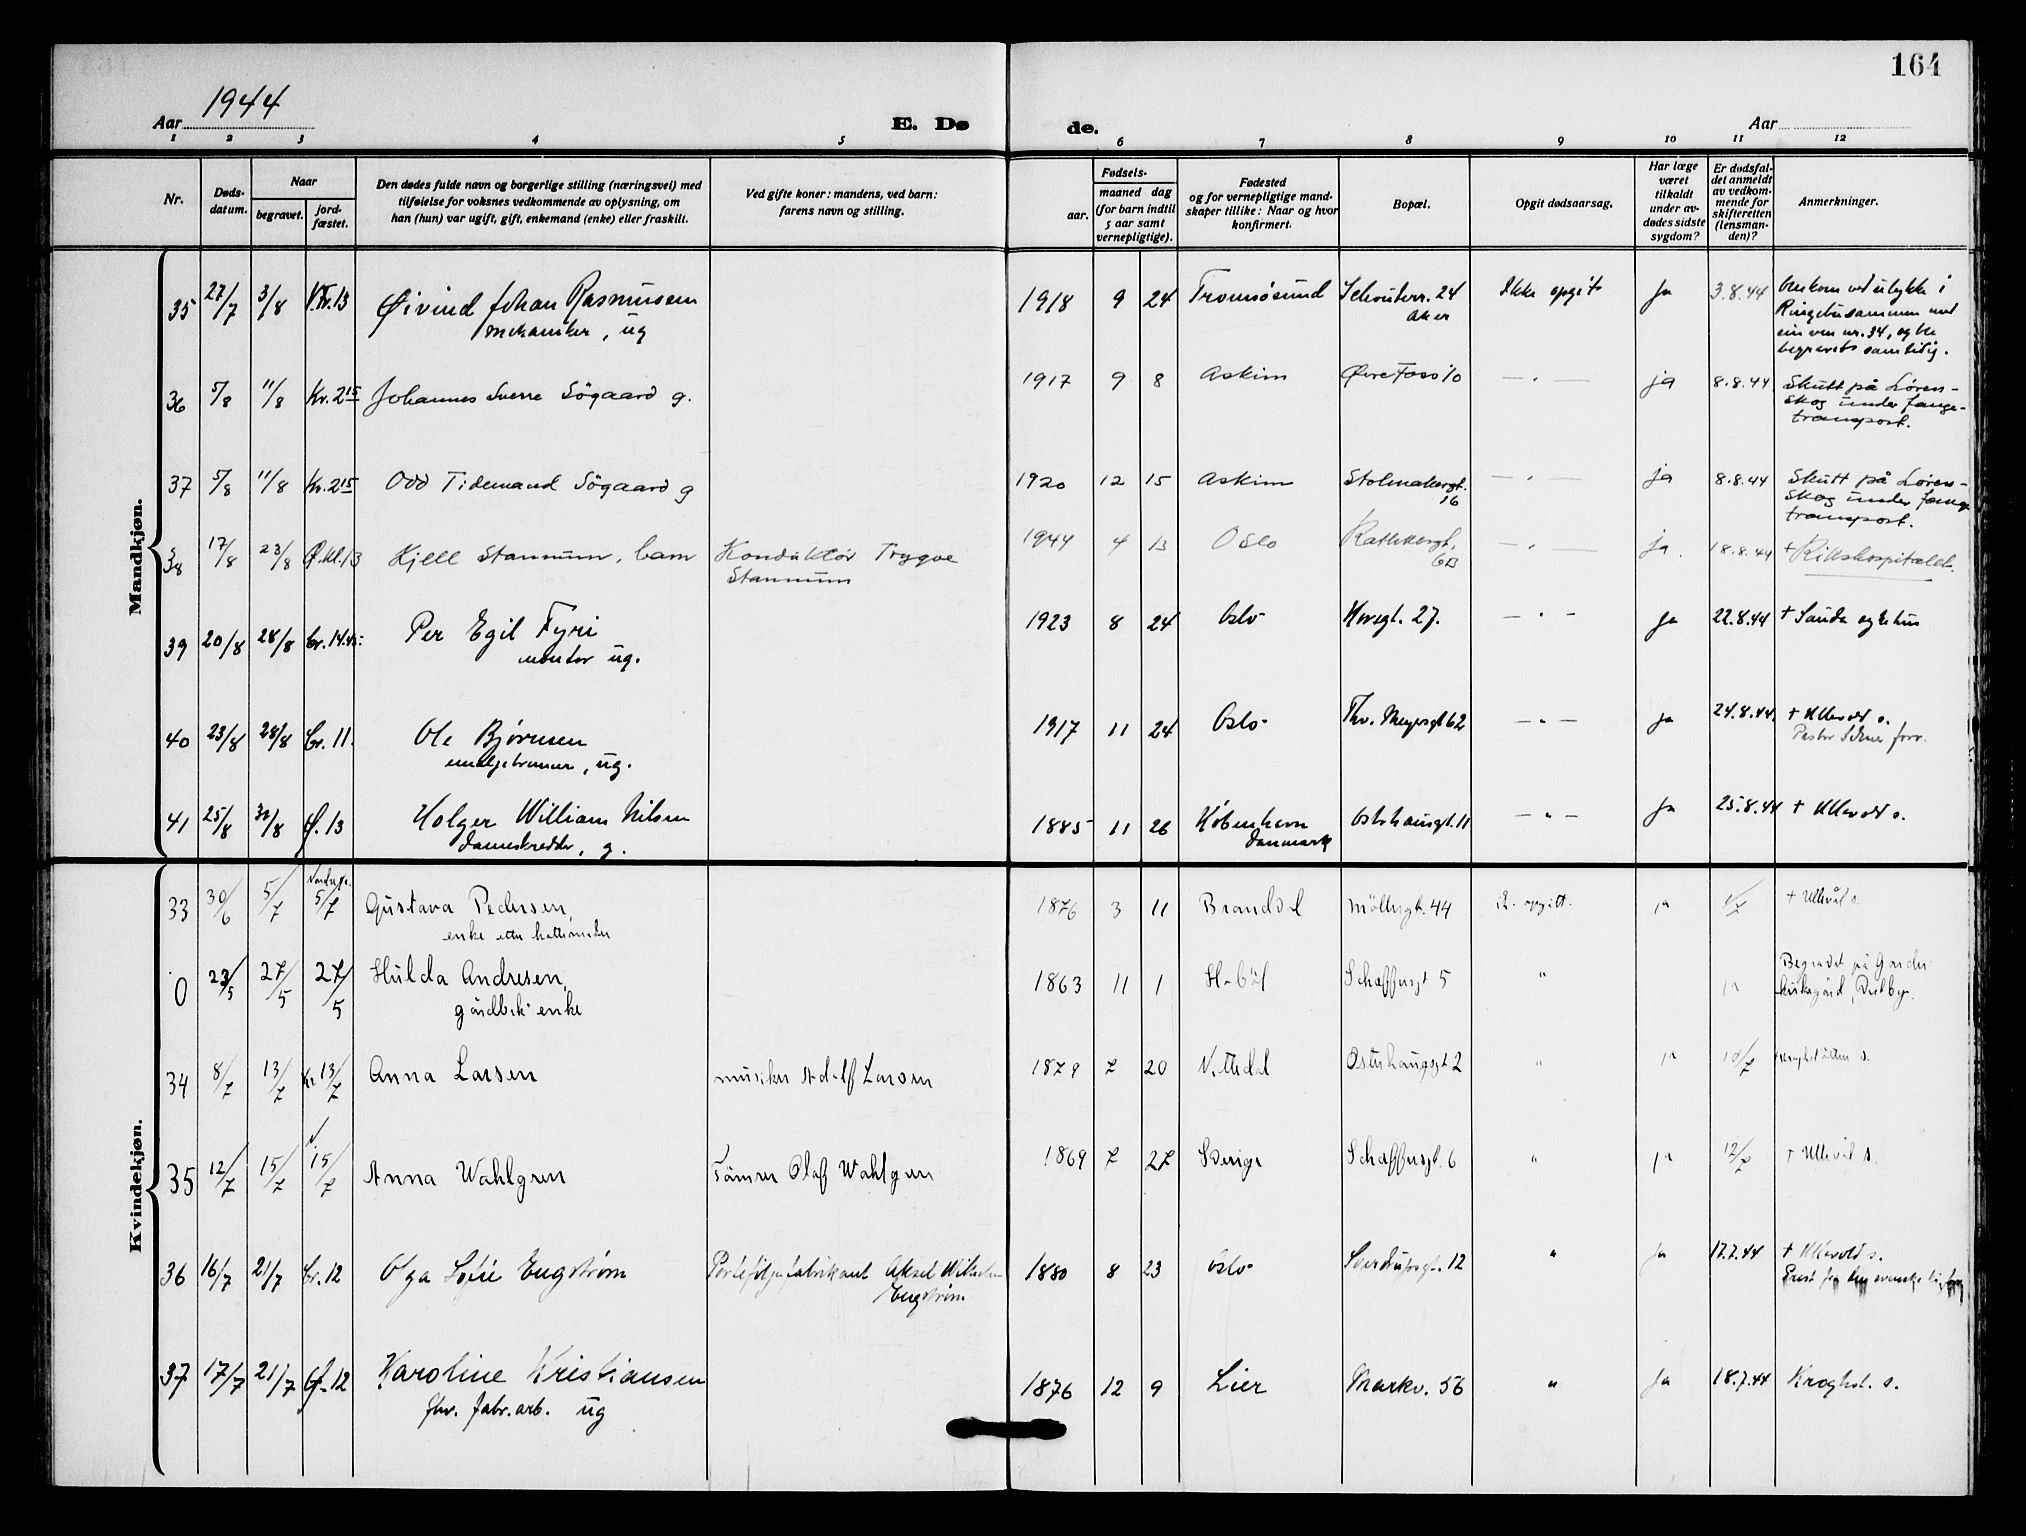 164
Aar 1944
E. Døde.
Aar
1 2 3 4 5 6 7 8 9 10 11 12
Nr.
Døds-
datum.
Naar
begravet.
jord-
fæstet.
Den dødes fulde navn og borgerlige stilling (næringsvei) med
tilføielse for voksnes vedkommende av oplysning, om
han (hun) var ugift, gift, enkemand (enke) eller fraskilt.
Ved gifte koner: mandens, ved barn:
farens navn og stilling.
Fødsels-
aar.
maaned dag
(for barn indtil
5 aar samt
vernepligtige).
Fødested
og for vernepligtige mand-
skaper tillike: Naar og hvor
konfirmert.
Bopæl.
Opgit dødsaarsag.
Har læge
været
tilkaldt
under av-
dødes sidste
sygdom?
Er dødsfal-
det anmeldt
av vedkom-
mende for
skifteretten
(lensman-
den)?
Anmerkninger.
Mandkjøn.
35 27/7 3/8 V.Kr.13 Øivind Johan Rasmussen 1918 9 24 Tromsøsund Schouterr. 24 Ikke opgit Ja 3.8.44 Omkom ved ulykke i
mekaniker, ug Aker Ringebu sammen med
sin ven nr. 34, og ble
begravet samtidig.
36 5/8 11/8 Kr. 2 15 Johannes Sverre Søgaard g. 1917 9 8 Askim Øvre Foss 10 — " — ja 8.8.44 Skutt på Løren-
skog under fange-
transport.
37 5/8 11/8 Kr. 2 15 Odd Tidemand Søgaard g 1920 12 15 Askim Stolmakergt. — " — ja 8.8.44 Skutt på Løren-
16 skog under fange
transport.
38 17/8 23/8 Ø.kl.13 Kjell Stannum, barn Konduktör Trygve 1944 4 13 Oslo Rathkesgt. — " — ja. 18.8.44 + Rikshospitalet.
Stannum 6B
39 20/8 28/8 Cr. 14.45 Per Egil Fyri 1923 8 24 Oslo Korsgt. 27. — " — Ja 22.8.44 + Sauda sykehus
montør ug.
40 23/8 28/8 Cr. 11. Ole Bjørnsen 1917 11 24 Oslo Thv. Meyersgt 62 — " — Ja 24.8.44 + Ullevold s.
ug. Pastor forr.
41 25/8 30/8 Ø. 13 Holger William Nilsen 1885 11 26 København Osterhausgt. 11 — " — Ja 25.8.44 + Ullevold s.
Dameskredder, g. Danmark
Kvindekjøn.
33 30/6 5/7 5/7 Gustava Pedersen, 1876 3 11 Brandval Møllergt. 44 ik. opgitt. ja + Ullevål s.
enke etter hattemaker
0 23/5 27/5 27/5 Hulda Andresen, 1863 11 1 Hobøl Schæffersgt 5 " ja Begravet på Garder
gårdbr. enke kirkegård, Vestby.
34 8/7 13/7 Kr 13/7 Anna Larsen musiker Adolf Larsen 1879 7 20 Nittedal Osterhausgt 2 " ja 10/7 s.
35 12/7 15/7 15/7 Anna Wahlgren Tømrer Olaf Wahlgren 1869 7 27 Sverige Schæffersgt. 6 " ja 12/7 + Ullevål s.
36 16/7 21/7 Cr. 12 Olga Sofie Engstrøm Porteføljefabrikant Aksel Wilhelm 1880 8 23 Oslo Sverdrupsgt. 12 " Ja 17.7.44 + Ullevold s.
Engstrøm Prest fra den svenske
37 17/7 21/7 Ø. 12 Karoline Kristiansen 1876 12 9 Lier Markv. 56 " Ja 18.7.44 Kroghst. s.
fhv. fabr. arb. ug